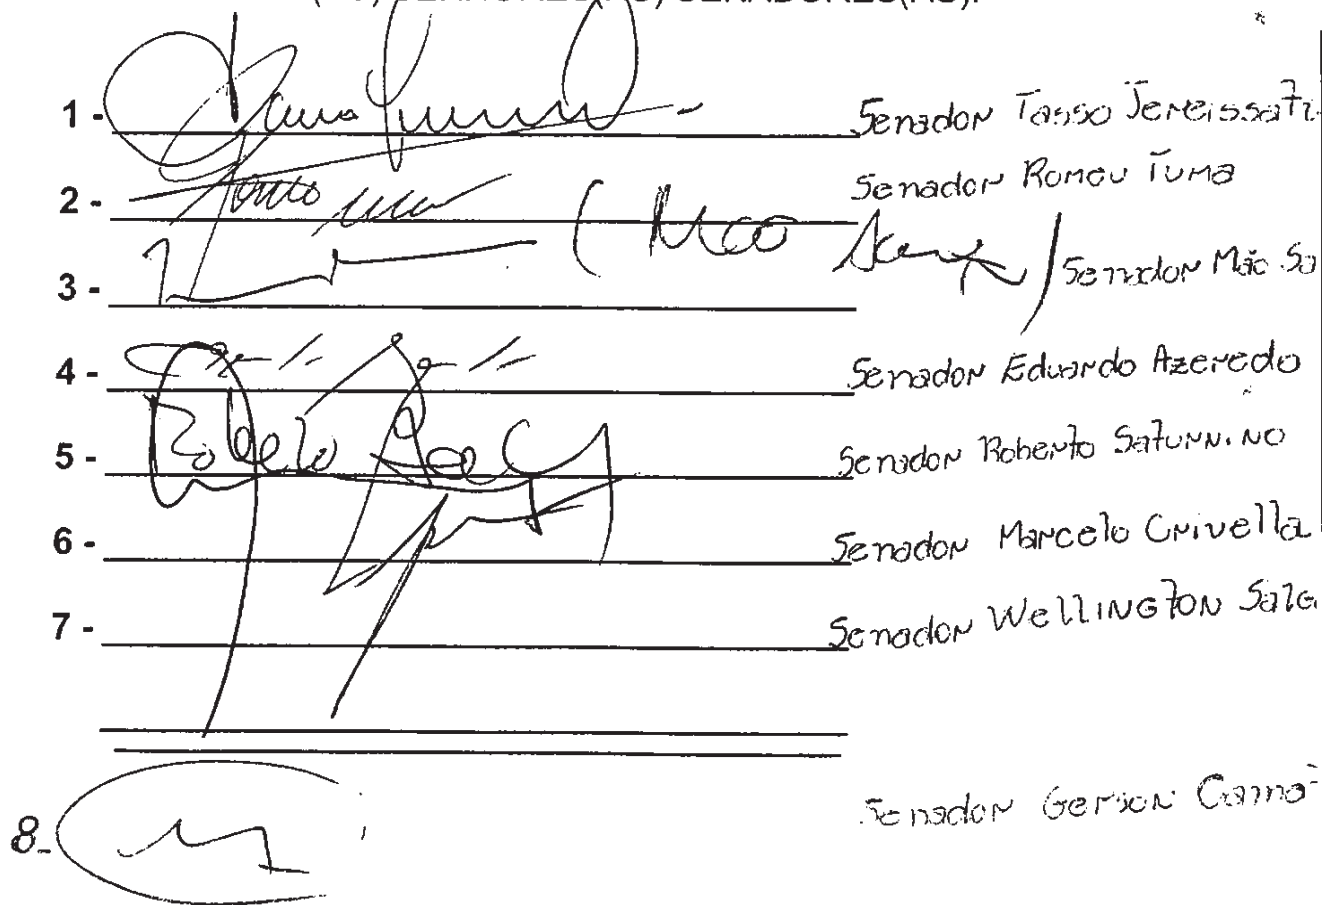 1 - Senador Tasso Jereissati
2 - Senador Romeu Tuma
3 - ( Mão Santa ) Senador Mão Sa
4 - Senador Eduardo Azeredo
5 - Senador Roberto Saturnino
6 - Senador Marcelo Crivella
7 - Senador Wellington Salg
8 - Senador Gerson Cama